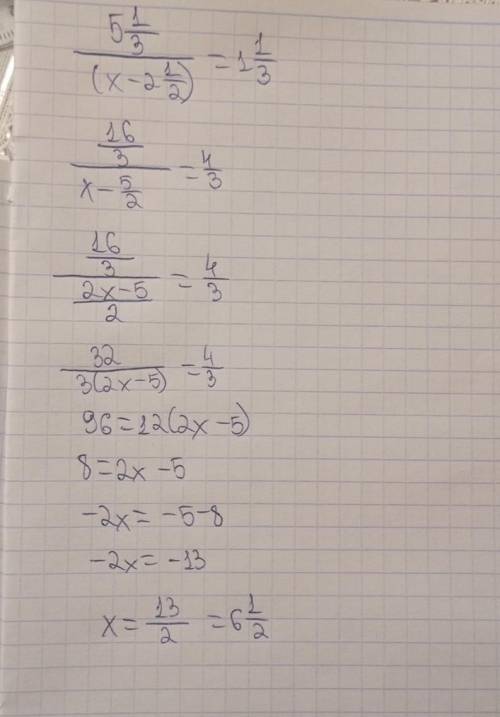 5 1/3 / (x-2 1/2) = 1 1/3
16/3 / x - 5/2 = 4/3
16/3 / 2x-5/2 = 4/3
32 / 3(2x-5) = 4/3
96=12(2x-5)
8=2x-5
-2x= -5-8
-2x= -13
x= 13/2 = 6 1/2